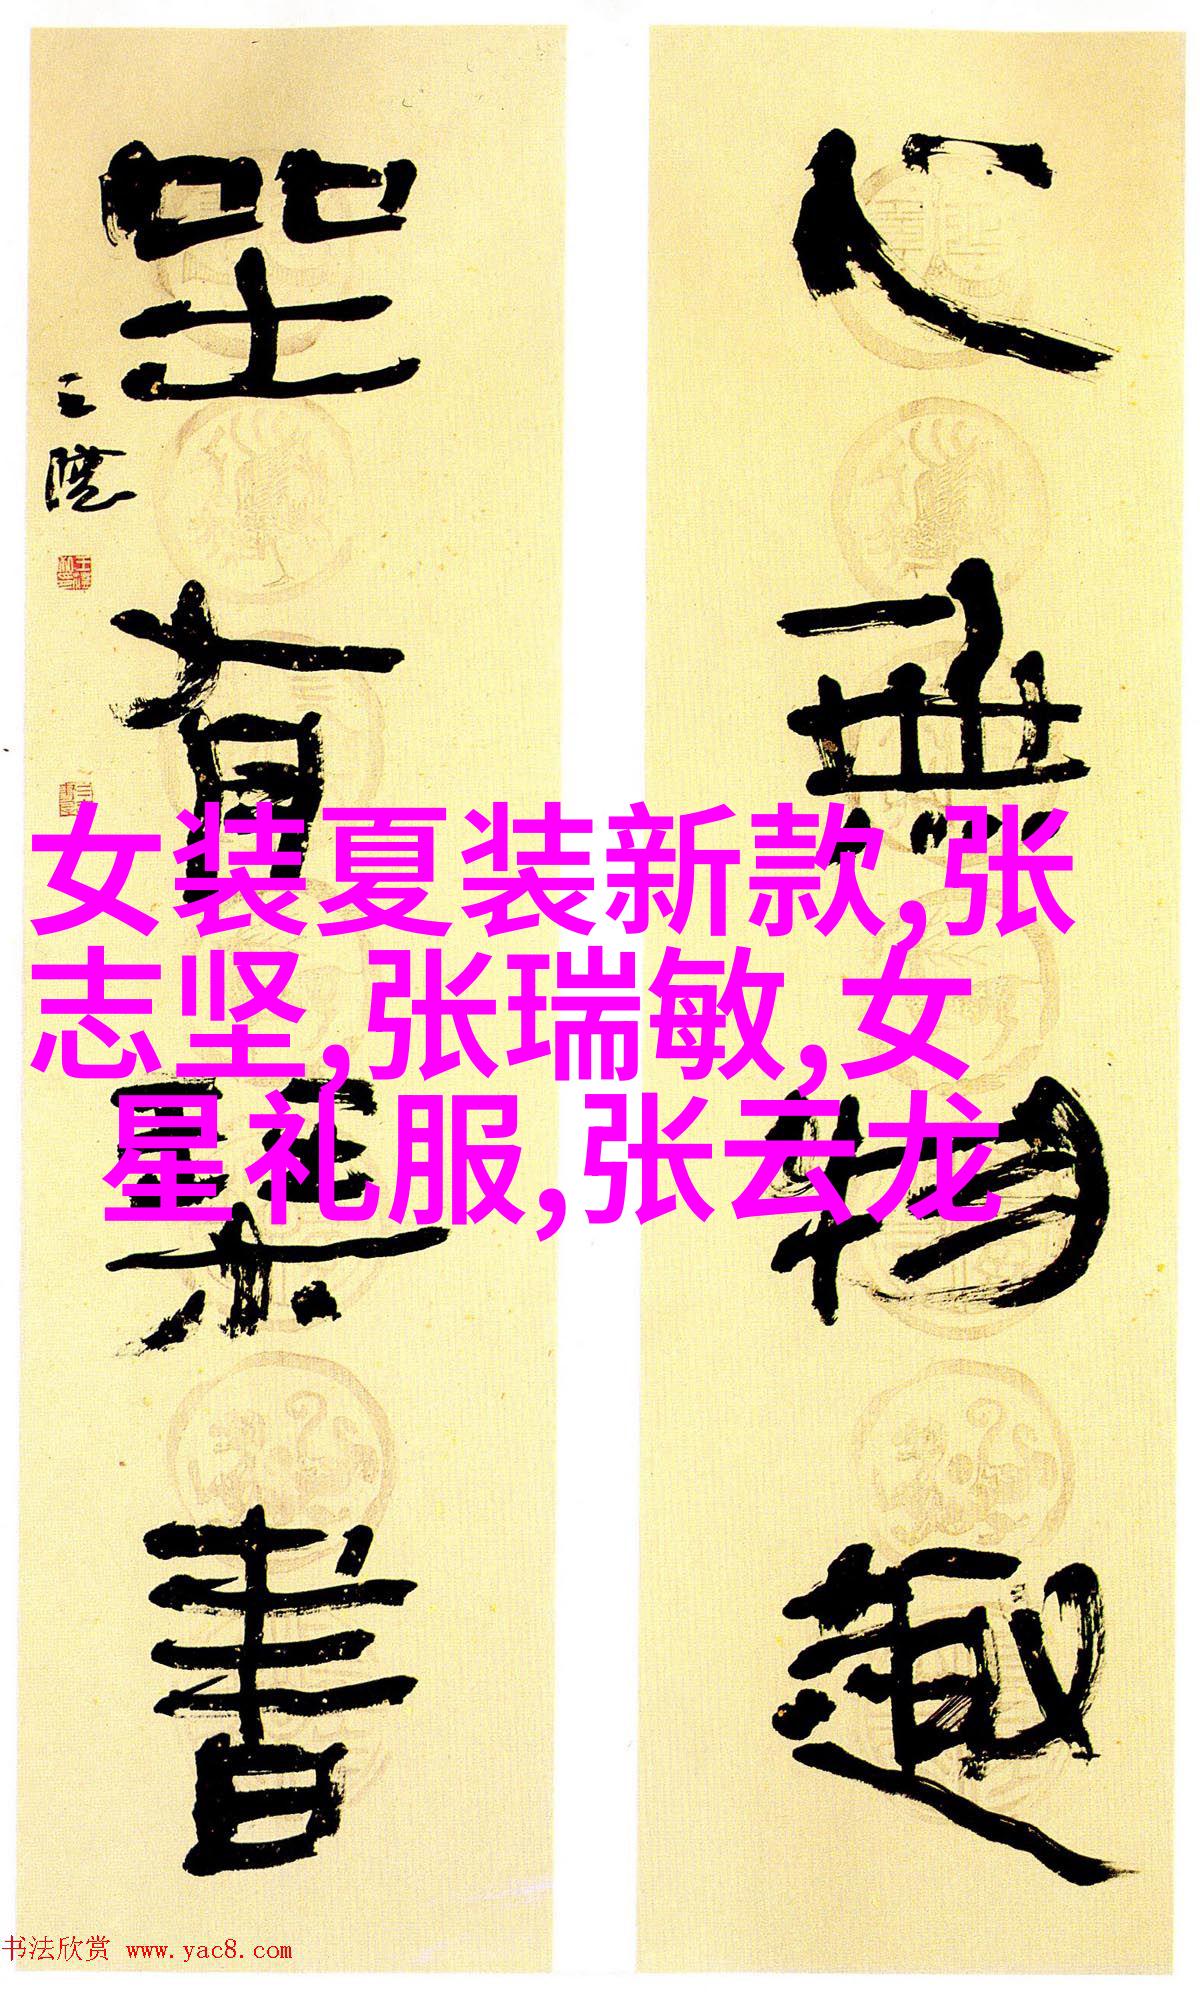 心無物趣
坐有琴書
女装夏装新款,张
志坚,张瑞敏,女
星礼服,张云龙
书法欣赏 www.yac8.com